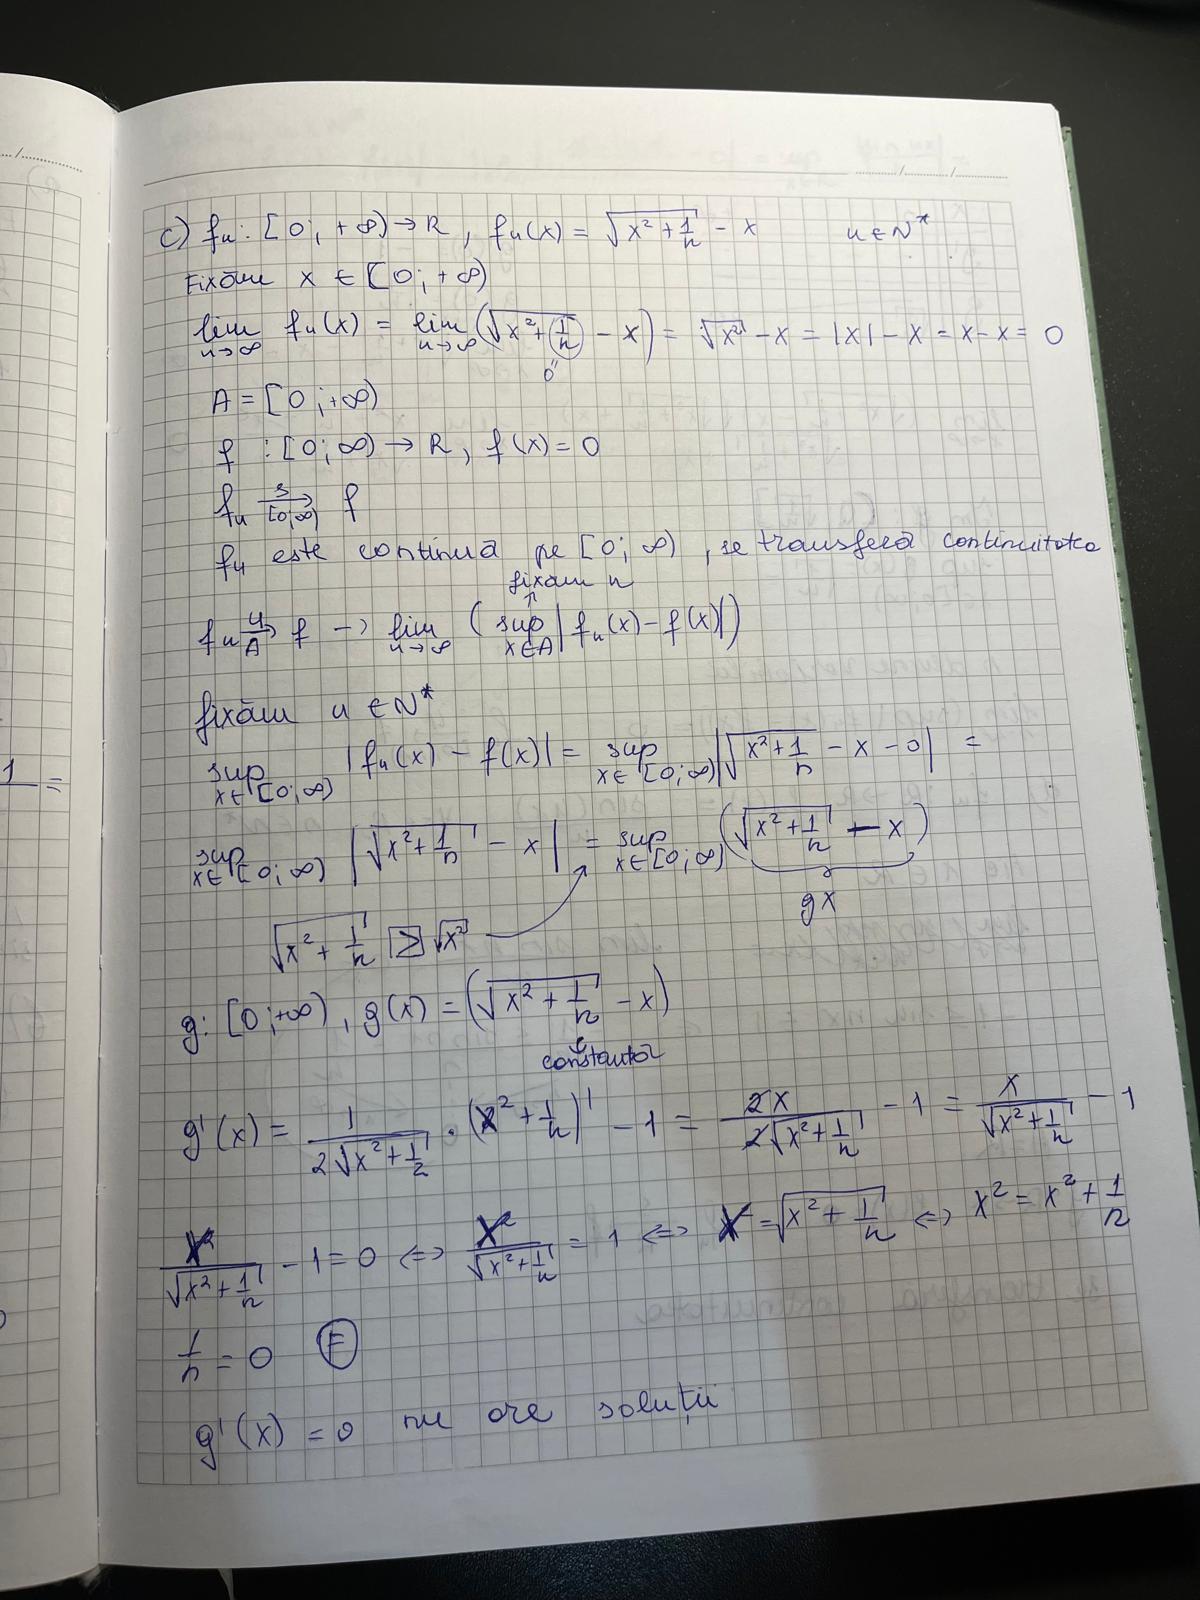 c) fn : [0; +∞) → R, fn(x) = √(x² + 1/n) - x n ∈ N*
Fixăm x ∈ [0; +∞)
lim n→∞ fn(x) = lim n→∞ (√(x² + 1/n) - x) = √x² - x = |x| - x = x - x = 0
0
A = [0; +∞)
f : [0; ∞) → R, f(x) = 0
fn s→ [0; ∞) f
fn este continuă pe [0; ∞), se transferă continuitatea
fixăm n
fn u→ A f → lim n→∞ (sup x∈A |fn(x) - f(x)|)
fixăm n ∈ N*
sup x∈[0; ∞) |fn(x) - f(x)| = sup x∈[0; ∞) |√(x² + 1/n) - x - 0| =
sup x∈[0; ∞) |√(x² + 1/n) - x| = sup x∈[0; ∞) (√(x² + 1/n) - x)
gx
√(x² + 1/n) ≥ √x²
g: [0; +∞), g(x) = (√(x² + 1/n) - x)
constantă
g'(x) = 1/(2√(x² + 1/2)) · (x² + 1/n)' - 1 = 2x/(2√(x² + 1/n)) - 1 = x/√(x² + 1/n) - 1
x/√(x² + 1/n) - 1 = 0 ⇔ x/√(x² + 1/n) = 1 ⇔ x = √(x² + 1/n) ⇔ x² = x² + 1/n
1/n = 0 F
g'(x) = 0 nu are soluții
1/ =